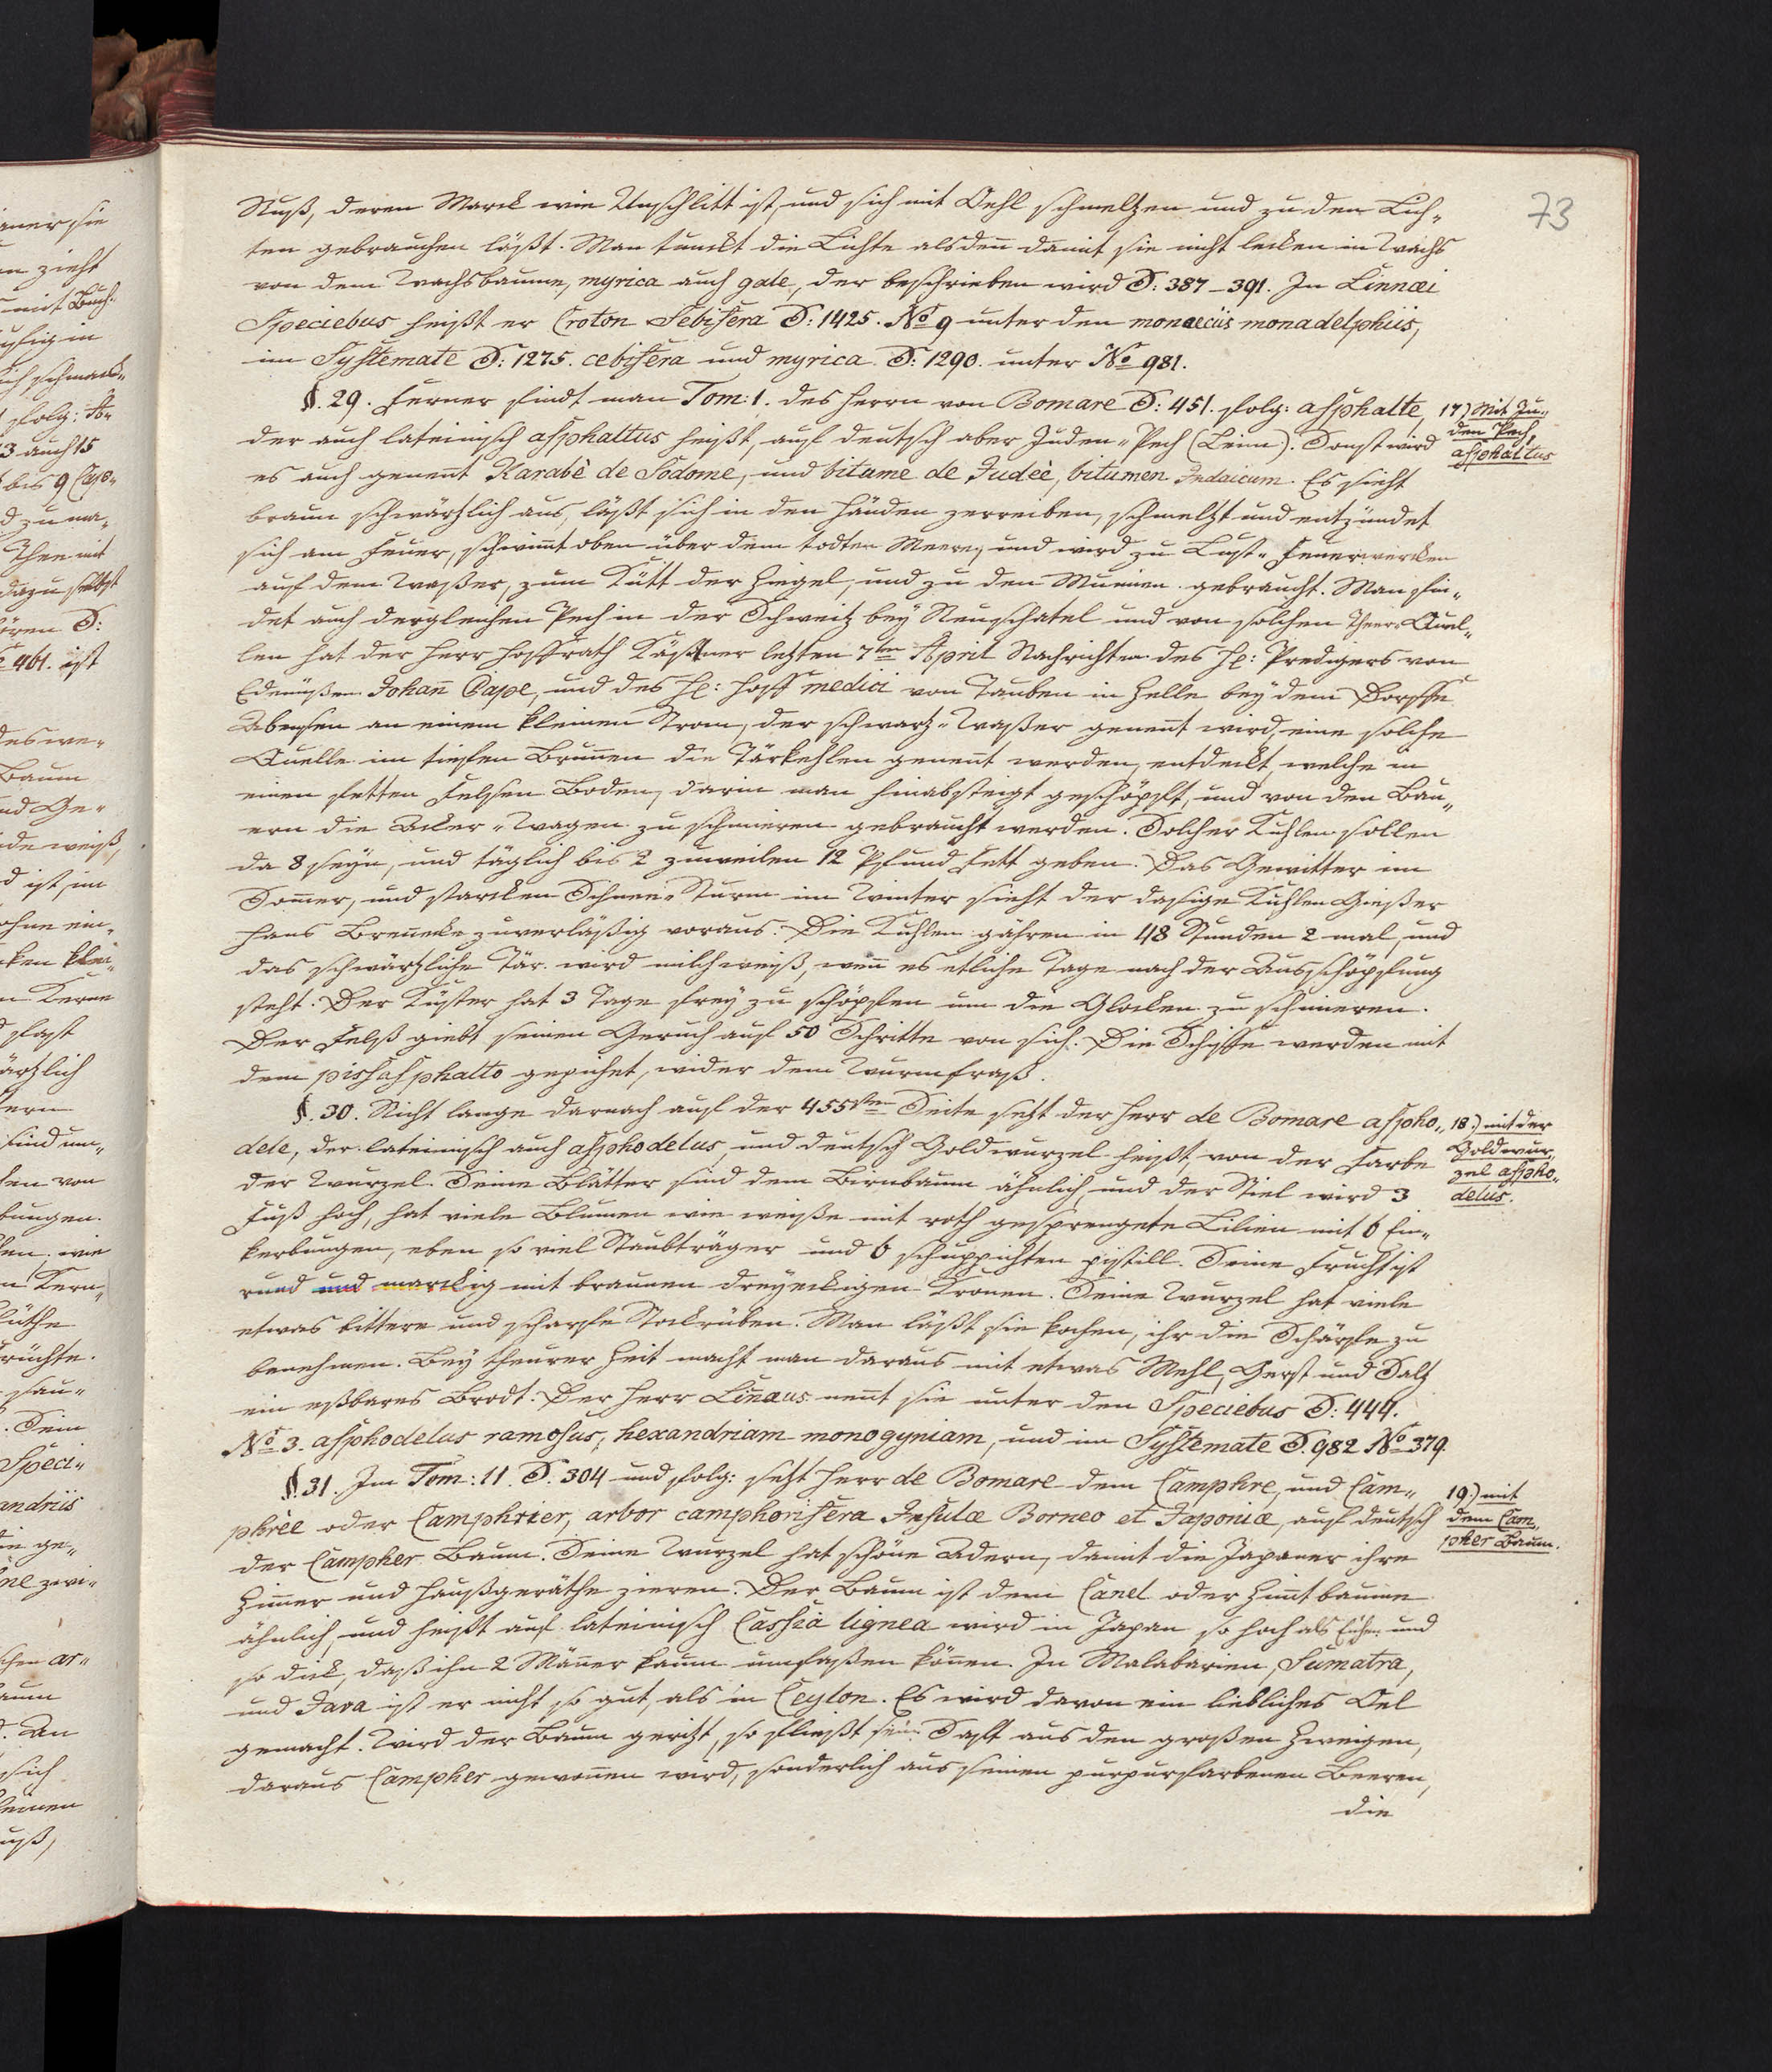 73
Nuß, deren Marck wie Unschlitt ist, und sich mit Oehl schmeltzen und zu den Lich„
ten gebrauchen läßt. Man tunckt die Lichte alsden̄ damit sie nicht lecken in Wachs
von dem Wachsbaume, myrica auch gale, der beschrieben wird S: 387–391. In Linnæi
Speciebus heißt er Croton Sebifera S: 1425. No 9 unter den monœciis monadelphiis,
im Systemate S: 1275. cebifera und myrica S: 1290. unter No 981.
§. 29. Ferner findt man Tom: 1. des Herrn von Bomare S: 451. folg: asphalte,
der auch lateinisch asphaltus heißt, auf deutsch aber Juden„Pech (Leim). Sonst wird
es auch genen̄t Karabè de Sodome, und bitume de Judeè, bitumen Judaicum. Es sieht
braun schwärtzlich aus, läßt sich in den Händen zerreiben, schmeltzt und entzündet
sich am Feuer, schwim̄t oben über dem todten Meere, und wird zu Lust„Feuerwercken
auf dem Waßer, zum Kütt der Ziegel, und zu den Mumien gebraucht. Man fin„
det auch dergleichen Pech in der Schweitz bey Neufchatel und von solchen Theer„Quel„
len hat der Herr Hoffrath Kästner letzten 7ten April Nachrichten des H: Predigers von
Edemißen Johan̄ Pape, und des H: Hoff medici von Tauben in Zelle bey dem Dorffe
an einem kleinen Strom, der schwartz„Waßer genen̄t wird, eine solche
Quelle im tiefen Brun̄en die Tärkuhlen genen̄t werden, entdeckt, welche in
einen fetten Felsen Boden, darin man hinabsteigt geschöpft, und von den Bau„
ern die Acker„Wagen zu schmieren gebraucht werden. Solcher Kuhlen sollen
da 8 seyn, und täglich bis 2 zuweilen 12 Pfund Fett geben. Das Gewitter im
Som̄er, und starcken Schnee„Sturm im Winter sieht der dasige Kuhlen Gießer
Hans Bren̄ecke zuverläßig voraus. Die Kuhlen gähren in 48 Stunden 2 mal, und
das schwärtzliche Tär wird milchweiß, wen̄ es etliche Tage nach der Ausschöpfung
steht. Der Küster hat 3 Tage frey zu schöpfen um die Glocken zu schmieren.
Der Felß giebt seinen Geruch auf 50 Schritte von sich. Die Schiffe werden mit
dem pissasphalto gepichet, wider dem Wurmfraß.
§. 30. Nicht lange darnach auf der 455sten Seite setzt der Herr de Bomare aspho„
dele, der lateinisch auch asphodelus, und deutsch Goldwurzel heißt, von der Farbe
der Wurzel. Seine Blätter sind dem Birnbaum ähnlich, und der Stiel wird 3
Fuß hoch, hat viele Blumen wie weiße mit roth gesprengete Lilien mit 6 Ein„
kerbungen, eben so viel Staubträger und 6 schuppichten pistill. Seine Frucht ist
rund und marckig mit braunen dreyeckigen Kronen. Seine Wurzel hat viele
etwas bittere und scharfe Steckrüben. Man läßt sie kochen, ihr die Schärfe zu
benehmen. Bey theurer Zeit macht man daraus mit etwas Mehl, Gerst und Saltz
ein eßbares Brodt. Der Herr Lin̄æus nen̄t sie unter den Speciebus S: 444.
No 3. asphodelus ramosus, hexandriam monogyniam, und im Systemate S. 982 No 379.
§. 31. Im Tom: 11. S. 304 und folg: setzt Herr de Bomare dem Camphre, und Cam„
phrèe oder Camphrier, arbor camphorifera Insulæ Borneo et Japoniæ, auf deutsch
der Campher Baum. Seine Wurzel hat schöne Adern, damit die Japaner ihre
Zim̄er und Haußgeräthe zieren. Der Baum ist dem Canel oder Zim̄tbaume
ähnlich, und heißt auf lateinisch Cassia lignea wird in Japan so hoch als Eichen und
so dick, daß ihn 2 Män̄er kaum umfaßen kön̄en. In Malabarien, Sumatra,
und Java ist er nicht so gut, als in Ceylon. Es wird davon ein liebliches Oel
gemacht. Wird der Baum geritzt, so fließt sein Saft aus den großen Zweigen,
daraus Campher gewon̄en wird, sonderlich aus seinen purpurfarbenen Beeren,
die
17) Mit Ju„
den Pech,
asphaltus
18.) mit der
Goldwur„
zel aspho„
delus.
19.) mit
dem Cam„
pher Baum.